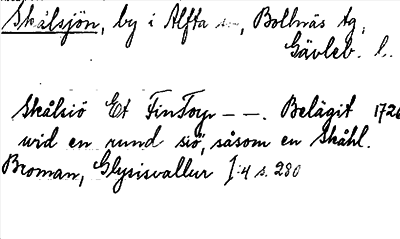 Skålsjön, by i Alfta sn, Bollnäs tg,
Gävleb. l.
Skålsiö Et FinTorp – –. Belägit 1726
wid en rund siö, såsom en Skåhl.
Broman, Glysisvallur I:4 s. 280